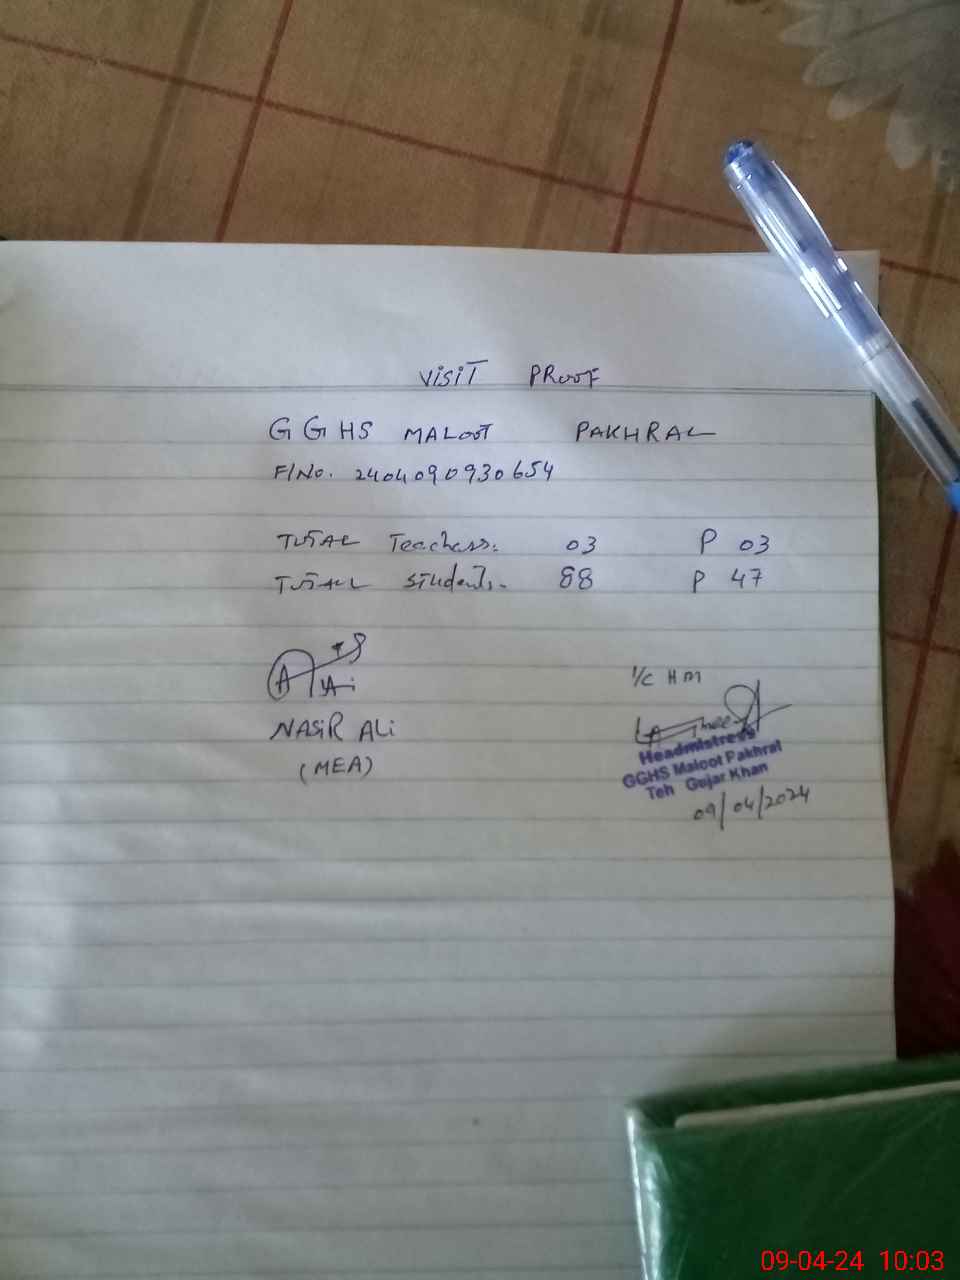 VISIT PROOF
GGHS MALOOT PAKHRAL
F/NO. 2404090930654
TOTAL Teachers. 03 P 03
TOTAL Students. 88 P 47
NASIR ALi
(MEA)
I/C HM
Headmistress
GGHS Maloot Pakhral
Teh Gujar Khan
09/04/2024
09-04-24 10:03